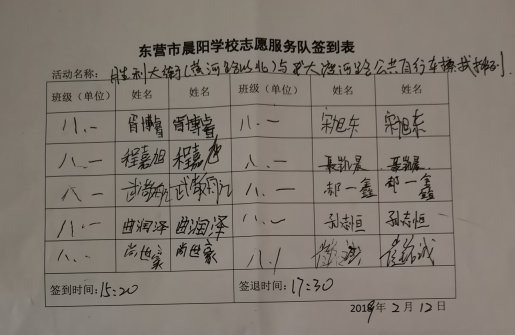 东营市晨阳学校志愿服务队签到表
活动名称: 胜利大街(黄河路以北)与 大渡河路公共自行车擦拭
班级(单位) 姓名 姓名 班级(单位) 姓名 姓名
八.一 胥博睿 胥博睿 八.一 宋旭东 宋旭东
八.一 程嘉旭 程嘉旭 八.一
八一 八.一 郝一鑫 郝一鑫
八.一 曲润泽 曲润泽 八.一 孙志恒 孙志恒
八.一 尚世豪 尚世豪 八.1
签到时间: 15:20 签退时间: 17:30
2019年 2月 12日